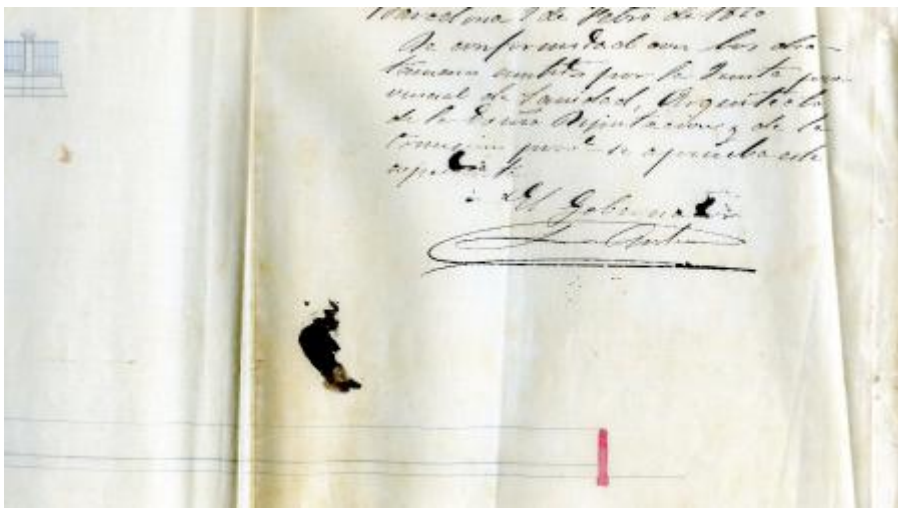 Barcelona 7 de de 18
De conformidad con los dic-
támenes emitidos por la Junta pro-
vincial de Sanidad, Arquitecto
de la Excma Diputacion y de la
Comision se aprueba este
El Gobernador